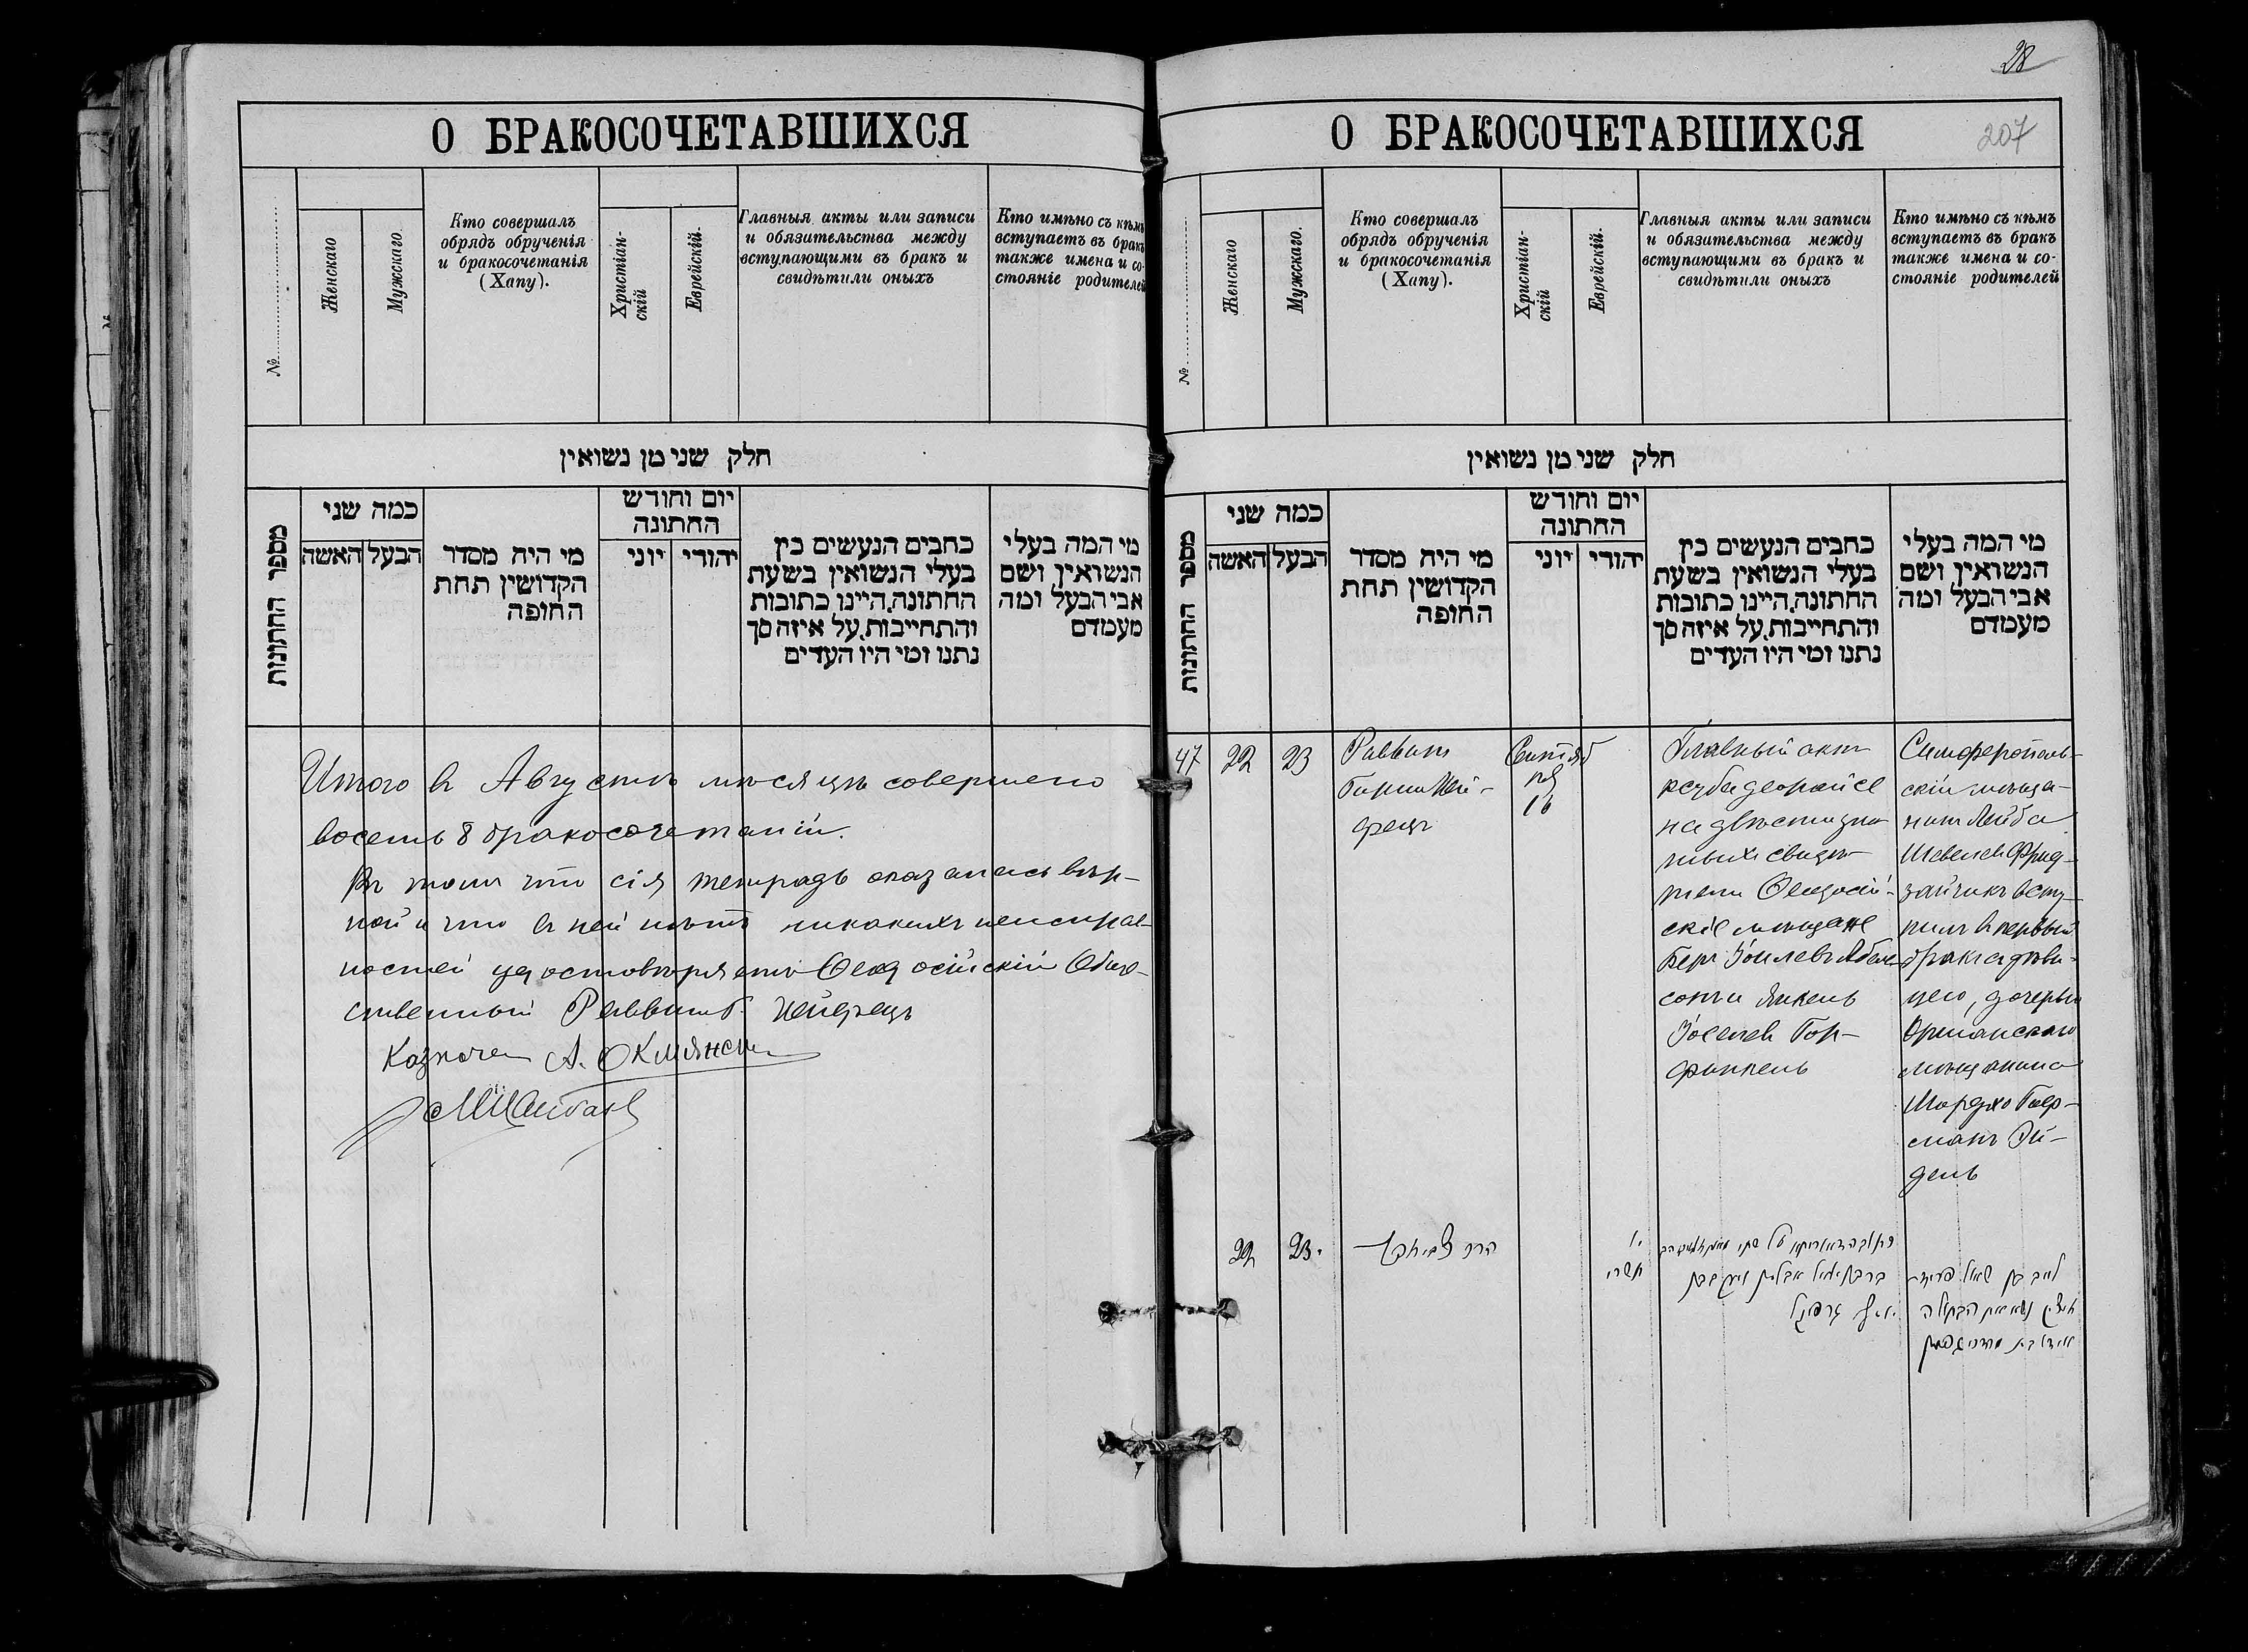 О БРАКОСОЧЕТАВШИХСЯ
№
Женскаго
Мужскаго.
Кто совершалъ
обрядъ обрученія
и бракосочетанія
(Хапу).
Христіан-
скій
Еврейскій.
Главныя акты или записи
и обязительства между
вступающими въ бракъ и
свидѣтили оныхъ
Кто имѣно съ кѣмъ
вступаетъ въ бракъ
также имена и со-
стояніе родителей
חלק שני מן נשואין
מספר החתונות
כמה שני
הבעל
האשה
מי היה מסדר
הקדושין תחת
החופה
יום וחודש
החתונה
יהודי
יוני
כתבים הנעשים בין
בעלי הנשואין בשעת
החתונה, היינו כתובות
והתחייבות, על איזה סך
נתנו ומי היו העדים
מי המה בעלי
הנשואין ושם
אבי הבעל ומה
מעמדם
Итого въ Августѣ мѣсяцѣ совершено
восемь 8 бракосочетаній.
Въ томъ что сія тетрадь оказалась вѣр-
ной и что въ ней нѣтъ никакихъ неисправ-
ностей удостовѣряетъ Ѳеодосійскій Обще-
ственный Раввинъ Б. Шейфецъ
Казначей А.
28
О БРАКОСОЧЕТАВШИХСЯ
207
№
Женскаго
Мужскаго.
Кто совершалъ
обрядъ обрученія
и бракосочетанія
(Хапу).
Христіан-
скій
Еврейскій.
Главныя акты или записи
и обязительства между
вступающими въ бракъ и
свидѣтили оныхъ
Кто имѣно съ кѣмъ
вступаетъ въ бракъ
также имена и со-
стояніе родителей
חלק שני מן נשואין
מספר החתונות
כמה שני
הבעל
האשה
מי היה מסדר
הקדושין תחת
החופה
יום וחודש
החתונה
יהודי
יוני
כתבים הנעשים בין
בעלי הנשואין בשעת
החתונה, היינו כתובות
והתחייבות, על איזה סך
נתנו ומי היו העדים
מי המה בעלי
הנשואין ושם
אבי הבעל ומה
מעמדם
47
22
23
Раввинъ
Сентяб
ря
16
Главный актъ
ксуба деорайсе
на двѣсти зло-
тыхъ свидѣ-
тели Ѳеодосій-
скіе мѣщане
Беръ Іоилевъ Абель-
сонъ и Янкель
Іоселев Гор-
финкель
Симферополь-
скій мѣща-
нинъ Лейба
Шевелевъ Фрид-
зайчикъ всту-
пилъ въ первый
бракъ съ дѣви-
цею, дочерью
Оршанскаго
мѣщанина
Мордхо Гоф-
манъ Эй-
дель
22
23.
תשרי